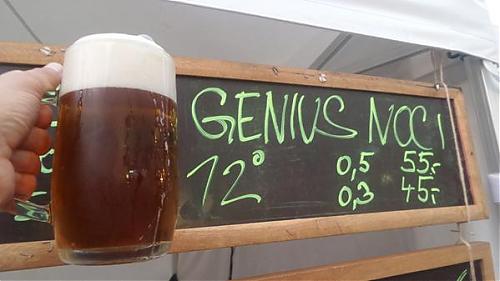 GENIUS NOCI
12° 0,5 55,-
0,3 45,-